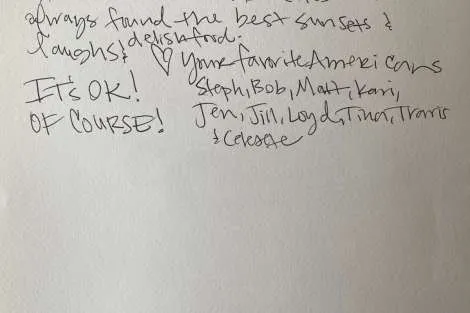 always found the best sunsets &
laughs & delish food.
♡ Your favorite Americans
IT'S OK!
OF COURSE!
Steph, Bob, Matt, Kari,
Jen, Jill, Loyd, Tina, Travis
& Celeste